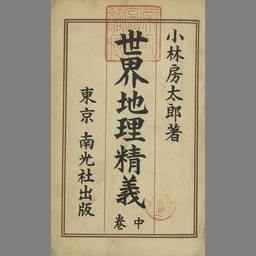 小林房太郎著
世界地理精義
中卷
東京 南光社出版